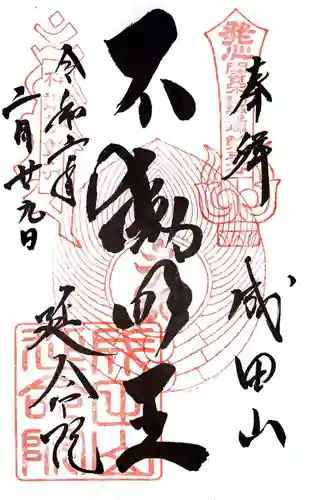 奉拝
成田山
不動明王
令和二年
二月廿九日
延命院